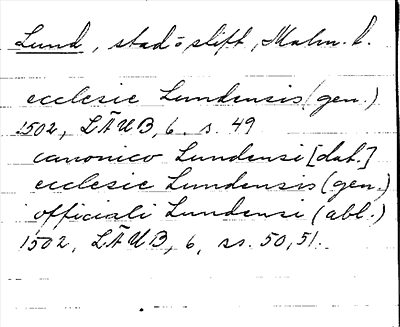 Lund, stad o stift, Malm. l.
ecclesie Lundensis (gen.)
1502, LÄUB, 6. s. 49
canonico Lundensi [dat.]
ecclesie Lundensis (gen.)
officiali Lundensi (abl.)
1502, LÄUB, 6, ss. 50, 51.